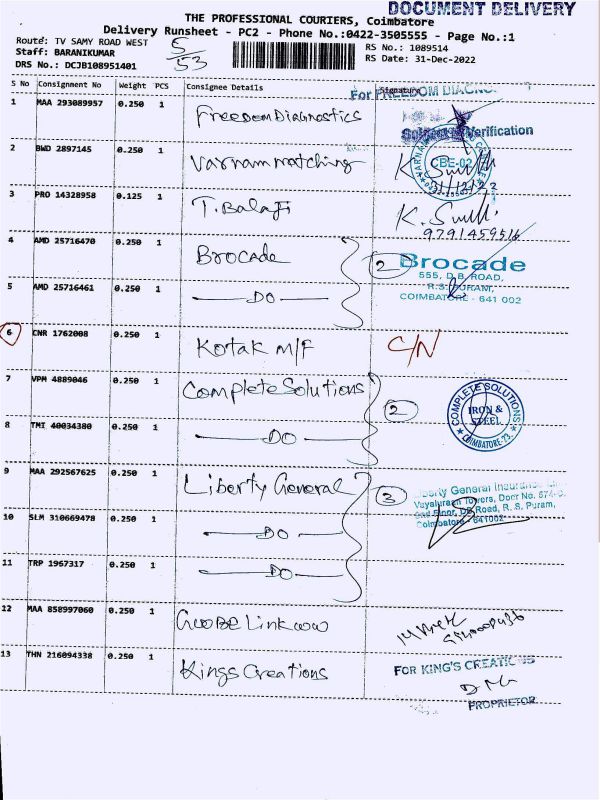 DOCUMENT DELIVERY
THE PROFESSIONAL COURIERS, Coimbatore
Delivery Runsheet - PC2 - Phone No.:0422-3505555 - Page No.:1
Route: TV SAMY ROAD WEST
5/53
RS No.: 1089514
Staff: BARANIKUMAR
RS Date: 31-Dec-2022
DRS No.: DCJB108951401
S No Consignment No Weight PCS Consignee Details Signature
For FREEDOM DIAGNO
1 MAA 293089957 0.250 1 Freedom Diagnostics
Subject to Verification
2 BWD 2897145 0.250 1 Varnam matching
CBE-02
31/12/22
3 PRO 14328958 0.125 1 T. Balaji
9791459516
4 AMD 25716470 0.250 1 Brocade 2 Brocade
555, D.B. ROAD,
R.S. PURAM,
COIMBATORE - 641 002
5 AMD 25716461 0.250 1 — DO —
6 CNR 1762008 0.250 1 Kotak M/F C/N
7 VPM 4889046 0.250 1 Complete Solutions 2
COMPLETE SOLUTIONS
IRON &
STEEL
COIMBATORE-23.
8 TMI 40034380 0.250 1 — DO —
9 MAA 292567625 0.250 1 Liberty General 3
Liberty General Insurance
Vayaluraan Towers, Door No. 574-
2nd Floor, DB Road, R.S. Puram,
Coimbatore - 641002
10 SLM 310669478 0.250 1 — DO —
11 TRP 1967317 0.250 1 — DO —
12 MAA 858997060 0.250 1
13 THN 216094338 0.250 1 Kings Creations
FOR KING'S CREATIONS
PROPRIETOR